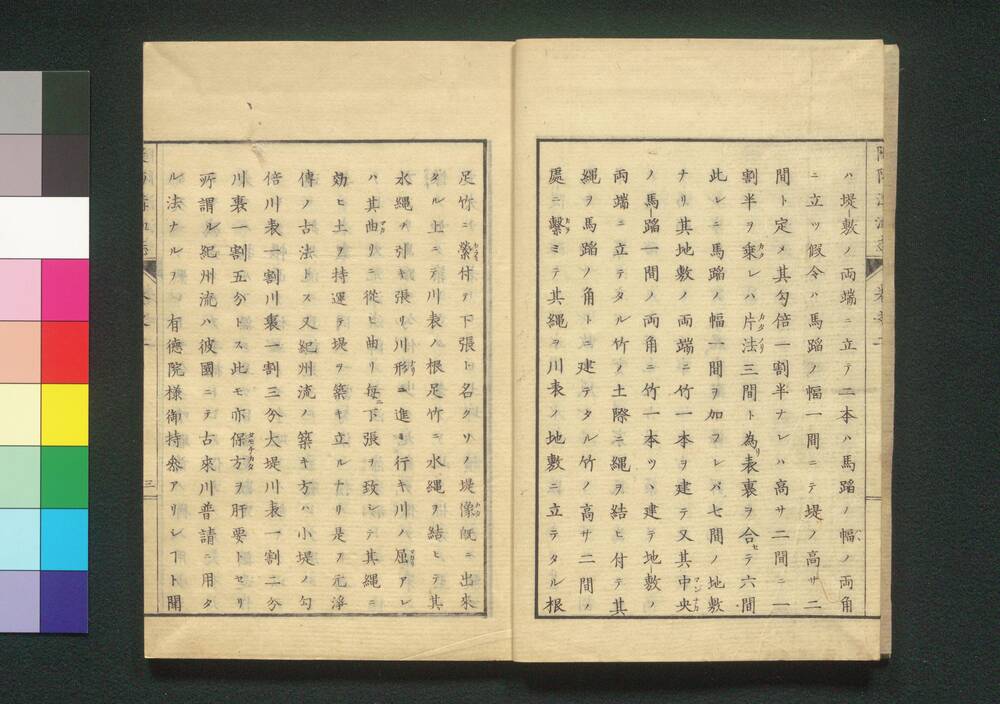 ハ堤敷ノ両端ニ立テ二本ハ馬蹈ノ幅ノ両角
ニ立ツ假令ハ馬蹈ノ幅一間ニテ堤ノ高サ二
間ト定メ其勾倍一割半ナレハ高サ二間ニ一
割半ヲ乗レハ片法三間ト為リ表裏ヲ合セテ六間
此レニ馬蹈ノ幅一間ヲ加フレバ七間ノ地敷
ナリ其地敷ノ両端ニ竹一本ヲ建テ又其中央
ノ馬蹈一間ノ両角ニ竹一本ツヽ建テ地敷ノ
両端ニ立テタル竹ノ土際ニ縄ヲ結ヒ付テ其
縄ヲ馬蹈ノ角トニ建テタル竹ノ高サ二間ノ
處ニ繫ミテ其縄ヲ川表ノ地敷ニ立テタル根
足竹ニ縈付ヲ下張ト名クソノ堤像既ニ出來
タル上ニテ川表ノ根足竹ニ水縄ヲ結ヒテ其
水縄ヲ引キ張リ川形ニ進ミ行キ川ノ屈アレ
ハ其曲リニ從ヒ曲リ毎ニ下張ヲ致シテ其縄ニ
効ヒ土ヲ持運テ堤ヲ築キ立ルナリ是ヲ元淨
傳ノ古法トス又紀州流ノ築キ方ハ小堤ノ勾
倍川表一割川裏一割三分大堤川表一割二分
川裏一割五分トス此モ亦保方ヲ肝要トセリ
所謂ル紀州流ハ彼國ニテ古來川普請ニ用タ
ル法ナルヲ有德院様御持參アリシヿト聞
三